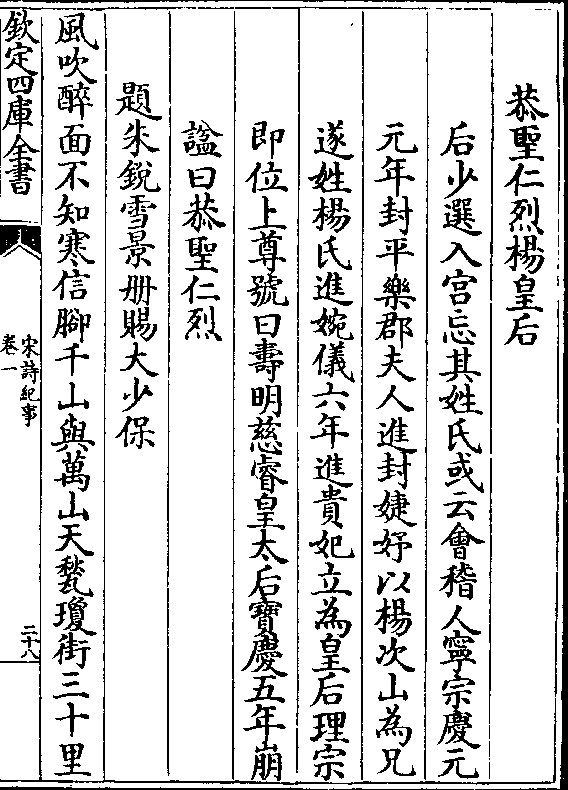 恭聖仁烈楊皇后
后少選入宮忘其姓氏或云會稽人寧宗慶元
元年封平樂郡夫人進封婕妤以楊次山為兄
遂姓楊氏進婉儀六年進貴妃立為皇后理宗
即位上尊號曰壽明慈睿皇太后寶慶五年崩
諡曰恭聖仁烈
題朱銳雪景册賜大少保
風吹醉面不知寒信腳千山與萬山天甃瓊街三十里
欽定四庫全書
宋詩紀事
卷一
二十八